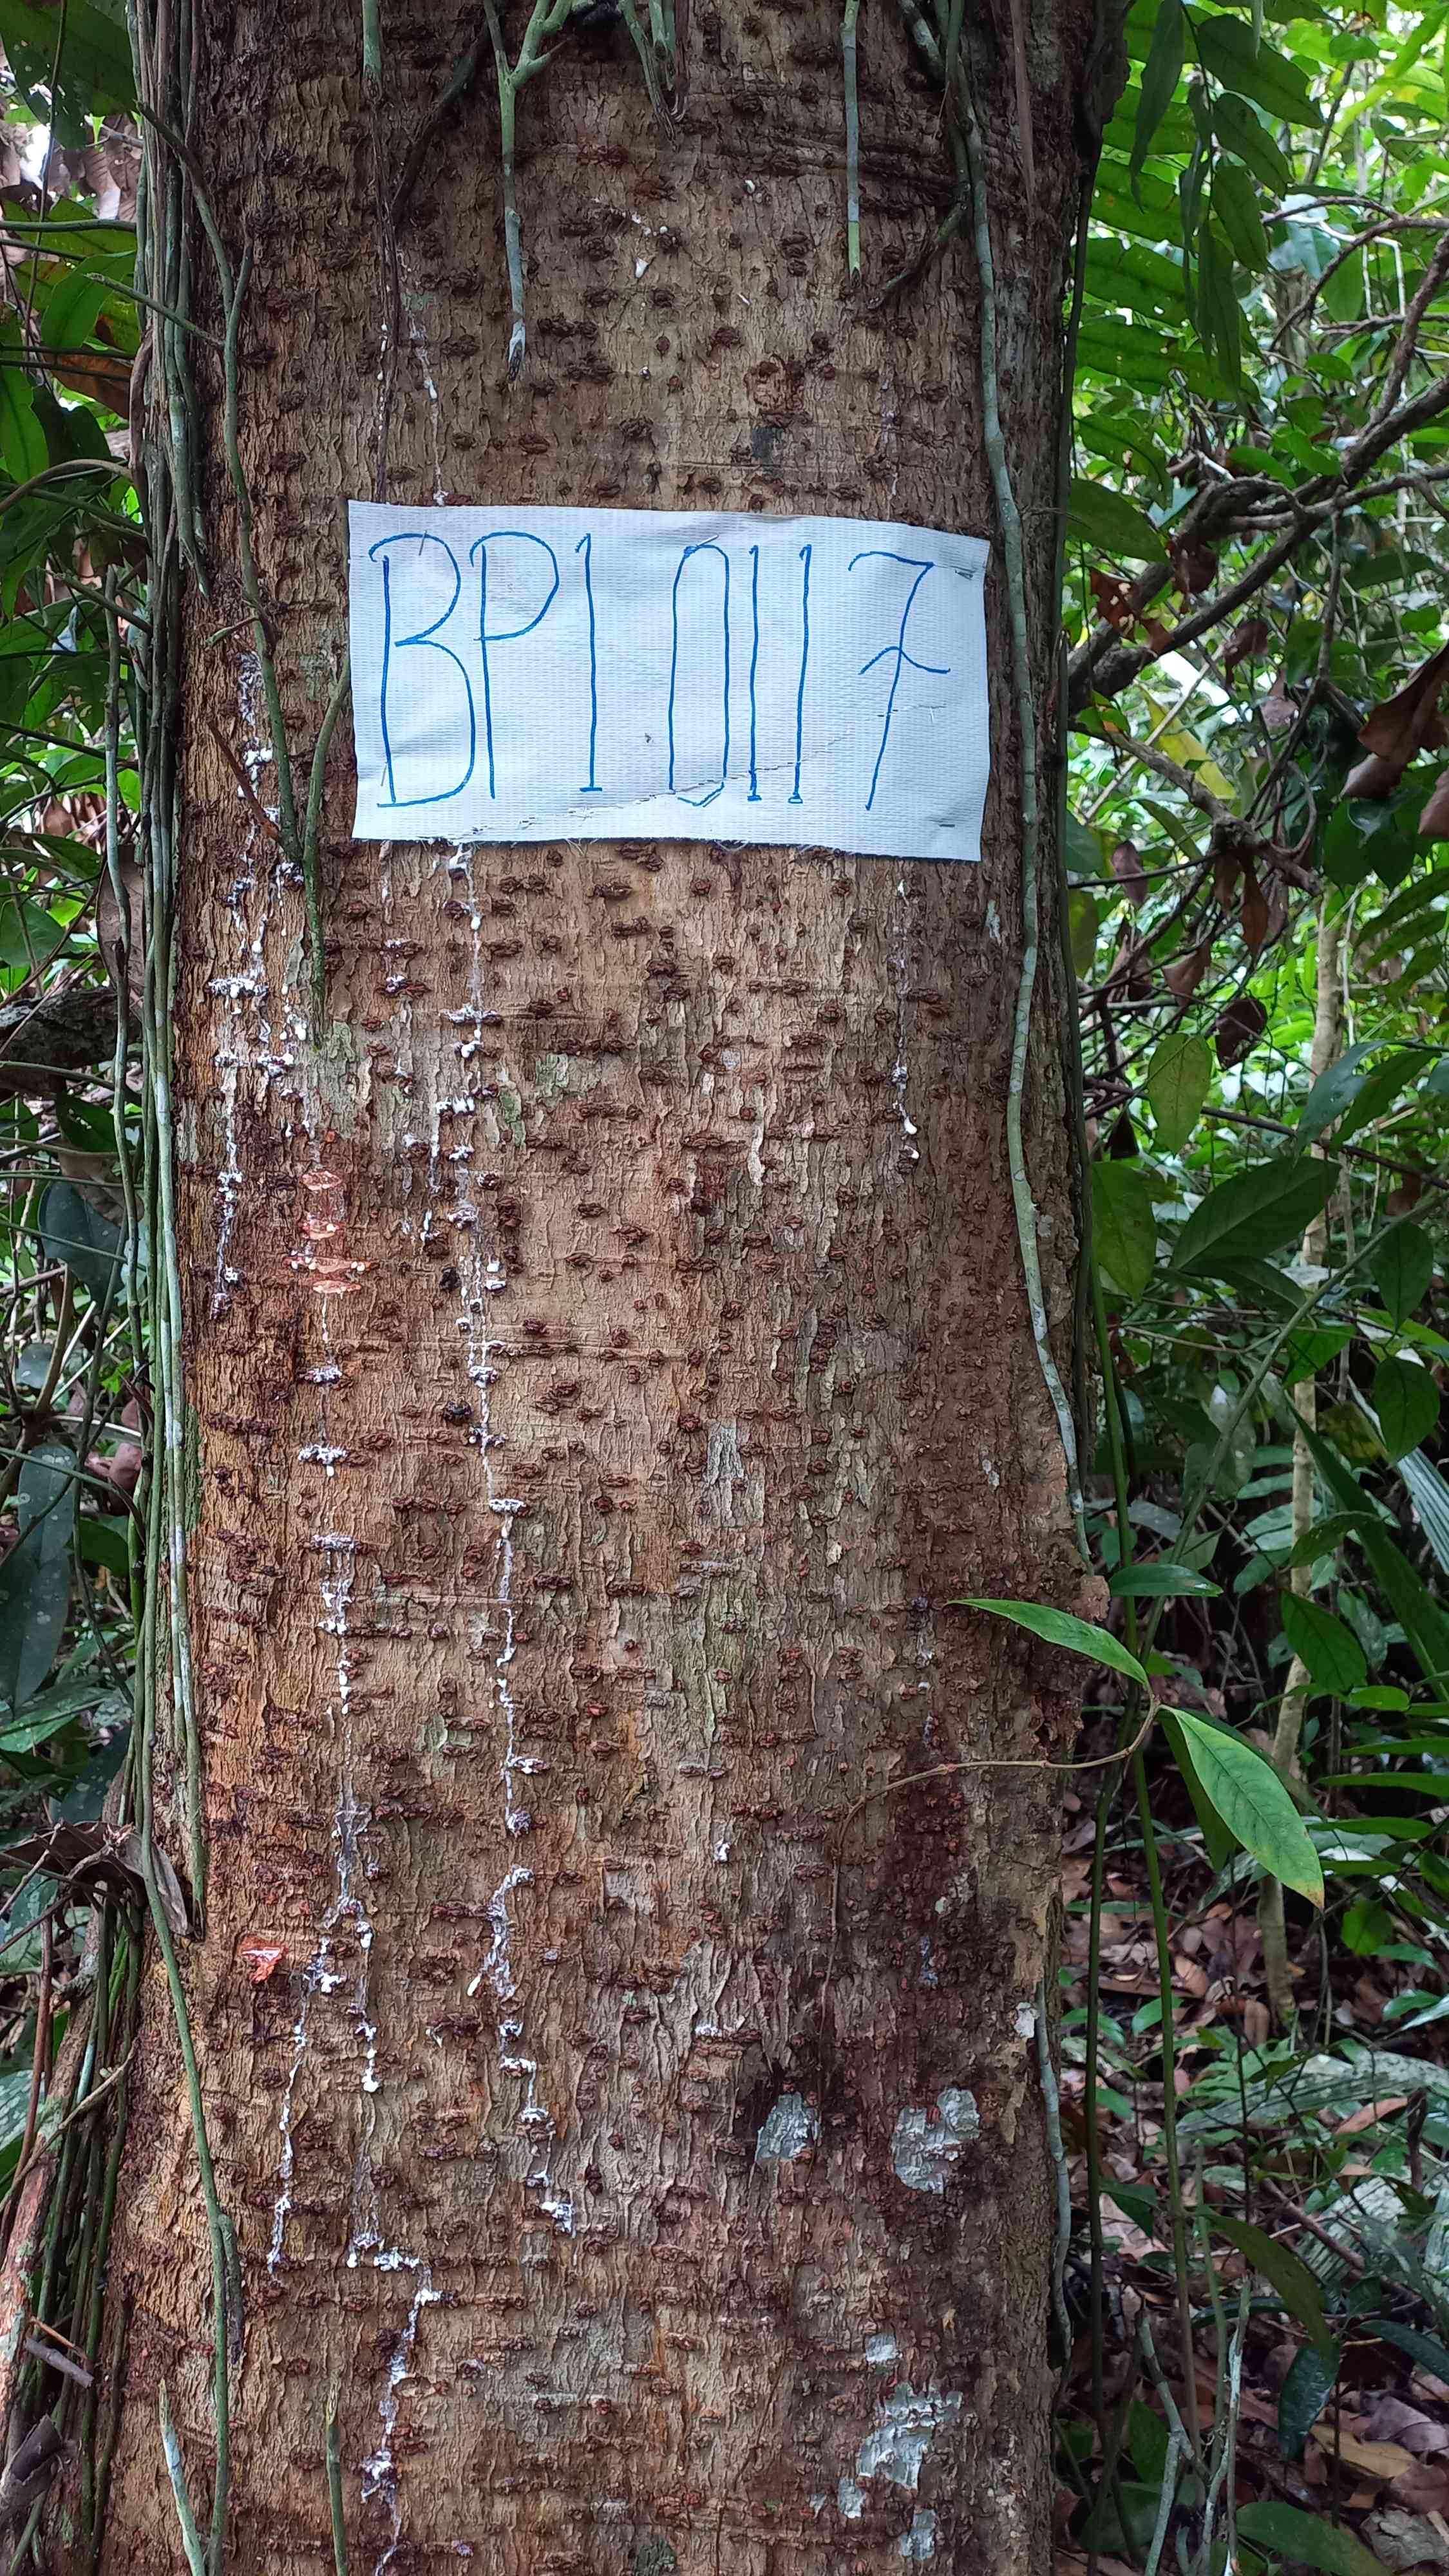 BP1 0117